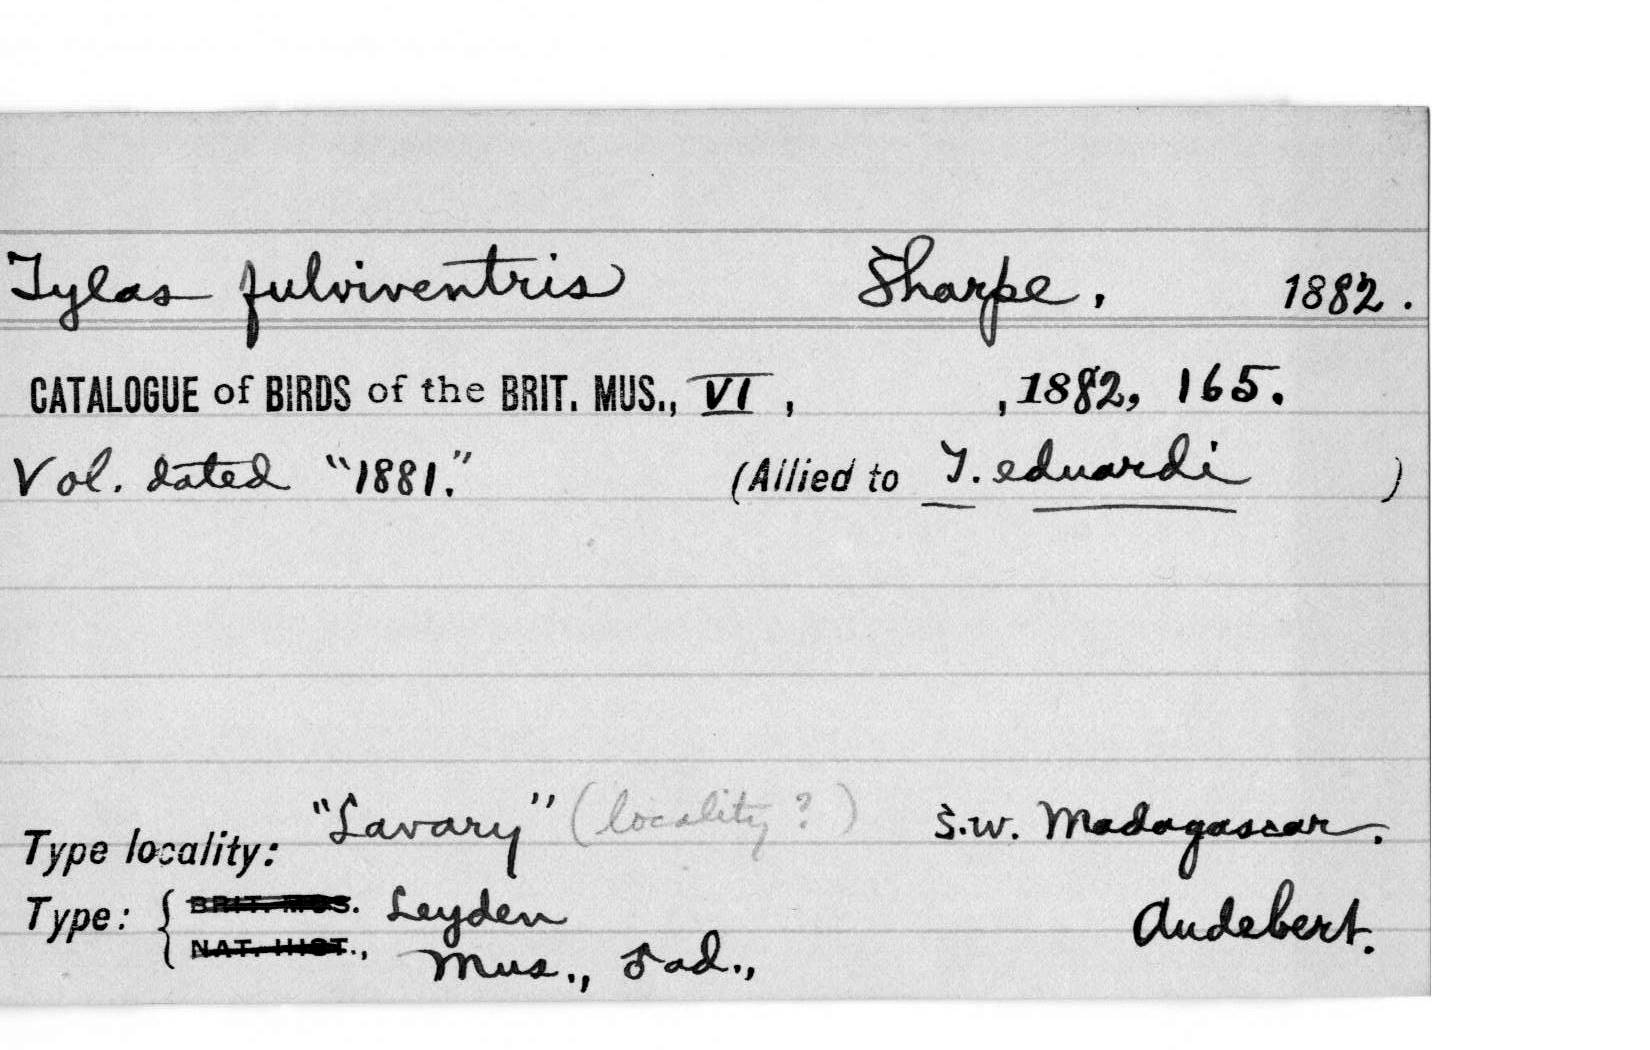 Tylas fulviventris Sharpe, 1882.
CATALOGUE of BIRDS of the BRIT. MUS., VI, , 1882, 165.
Vol. dated "1881." (Allied to T. eduardi )
Type locality: "Lavary" (locality?) S.W. Madagascar.
Type: { BRIT. MUS. Leyden Audebert.
NAT. HIST., Mus., ♂ ad.,